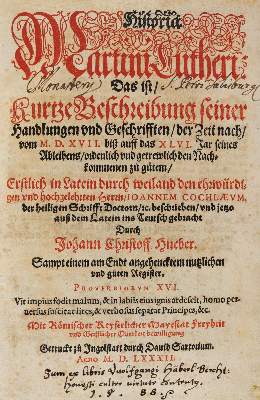 Historia
Martini Lutheri:
Monasterij S. Petri Salisburgi
Das ist/
Kurtze Beschreibung seiner
Handlungen vnd Geschrifften/ der Zeit nach/
vom M. D. XVII. biß auff das XLVI. Jar seines
Ableibens/ ordenlich vnd getrewlich den Nach-
kommenen zu gütem/
Erstlich in Latein durch weiland den ehrwürdi-
gen vnd hochgelehrten Herrn/ IOANNEM COCHLÆVM,
der heiligen Schrifft Doctorn/ ꝛc. beschriben/ vnd jetzo
auß dem Latein ins Teutsch gebracht
Durch
Johann Christoff Hueber.
Sampt einem am Endt angehenckten nutzlichen
vnd güten Register.
PROVERBIORVM XVI.
Vir impius fodit malum, & in labiis eius ignis ardescit, homo per-
uersus suscitat lites, & verbosus separat Principes, &c.
Mit Römischer Keyserlicher Mayestat Freyheit
vnd Geistlicher Oberkeit bewilligung
Getruckt zu Ingolstatt durch Dauid Sartorium.
Anno M. D. LXXXII.
Zum ex libris Wolfgangi Haberl